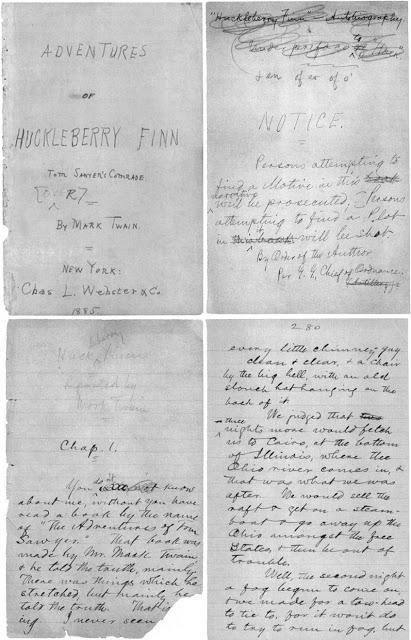 ADVENTURES
OF
HUCKLEBERRY FINN
TOM SAWYER'S COMRADE.
BY MARK TWAIN.
NEW YORK:
Chas L. Webster & Co.
1885.
"Huckleberry Finn" Autobiography
NOTICE.
Persons attempting to
find a Motive in this book
narrative
will be prosecuted; Persons
attempting to find a Plot
in this book will be shot
it
By Order of the Author
Per G. G., Chief of Ordnance.
Huck Finn
Reported by
Mark Twain
Chap. 1.
You do not know
about me, without you have
read a book by the name
of "The Adventures of Tom
Sawyer." That book was
made by Mr. Mark Twain,
& he told the truth, mainly.
There was things which he
stretched, but mainly he
told the truth. That is
I never seen
280
every little chimney; guy
clean & clear, & a chair
by the big bell, with an old
slouch hat hanging on the
back of it.
We judged that two
three
nights more would fetch
us to Cairo, at the bottom
of Illinois, where the
Ohio river comes in, &
that was what we was
after. We would sell the
raft & get on a steam-
boat & go away up the
Ohio amongst the free
States, & then be out of
trouble.
Well, the second night
a fog begun to come on,
& we made for a tow-head
to tie to, for it won't do
to try to run in fog; but